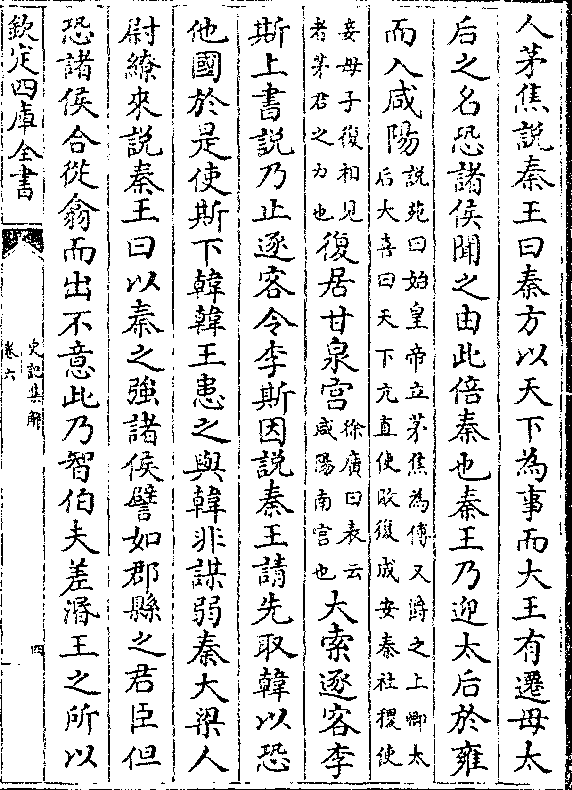 人茅焦説秦王曰秦方以天下為事而大王有遷母太
后之名恐諸侯聞之由此倍秦也秦王乃迎太后於雍
而入咸陽説苑曰始皇帝立茅焦為傅又爵之上卿太
后大喜曰天下亢直使敗復成安秦社稷使
妾母子復相見
者茅君之力也復居甘泉宫徐廣曰表云
咸陽南宫也大索逐客李
斯上書説乃止逐客令李斯因説秦王請先取韓以恐
他國於是使斯下韓韓王患之與韓非謀弱秦大梁人
尉繚來説秦王曰以秦之強諸侯譬如郡縣之君臣但
恐諸侯合從翕而出不意此乃智伯夫差湣王之所以
欽定四庫全書
史記集解
卷六
四